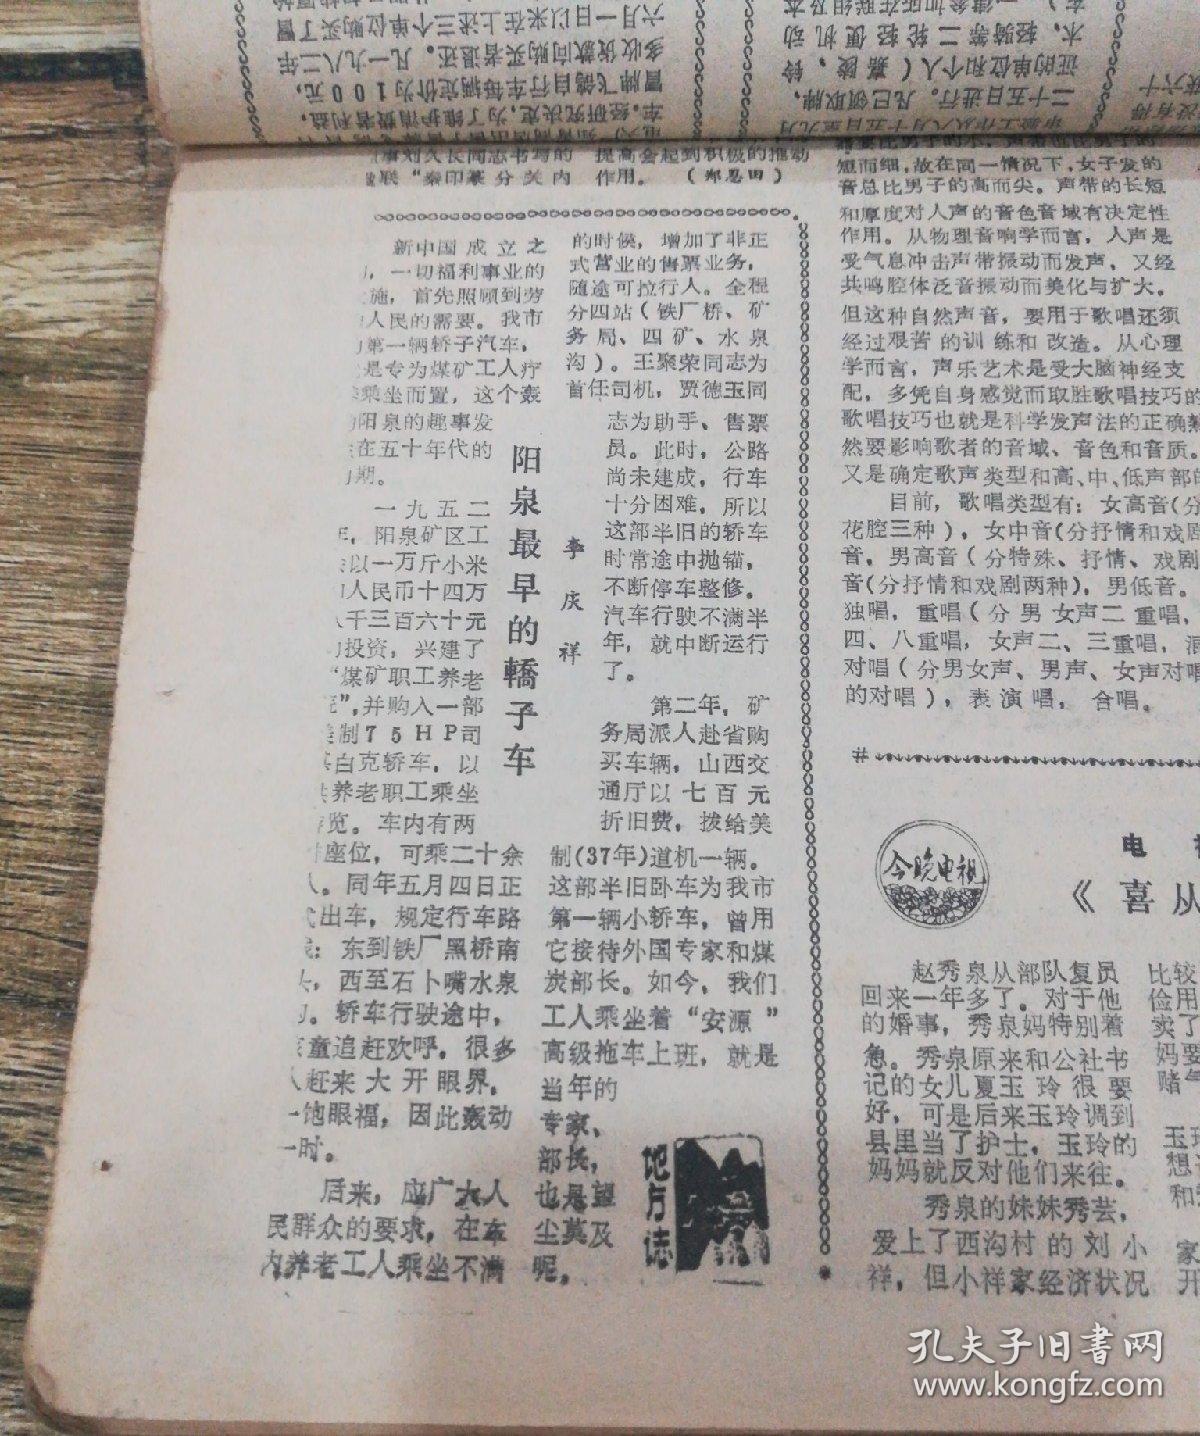 事刘久长同志书写的
联“秦印篆分关内
提高会起到积极的推动
作用。 （郑恩田）
阳泉最早的轎子车
李庆祥
新中国成立之
，一切福利事业的
施，首先照顾到劳
人民的需要。我市
第一辆轿子汽车，
是专为煤矿工人疗
乘坐而置，这个轰
阳泉的趣事发
在五十年代的
期。
一九五二
年，阳泉矿区工
以一万斤小米
人民币十四万
千三百六十元
投资，兴建了
“煤矿职工养老
”，并购入一部
制75HP司
白克轿车，以
养老职工乘坐
览。车内有两
座位，可乘二十余
。同年五月四日正
出车，规定行车路
：东到铁厂黑桥南
，西至石卜嘴水泉
。轿车行驶途中，
童追赶欢呼，很多
赶来大开眼界，
一饱眼福，因此轰动
一时。
后来，应广大人
民群众的要求，在车
内养老工人乘坐不满
的时候，增加了非正
式营业的售票业务，
随途可拉行人。全程
分四站（铁厂桥、矿
务局、四矿、水泉
沟）。王聚荣同志为
首任司机，贾德玉同
志为助手、售票
员。此时，公路
尚未建成，行车
十分困难，所以
这部半旧的轿车
时常途中抛锚，
不断停车整修。
汽车行驶不满半
年，就中断运行
了。
第二年，矿
务局派人赴省购
买车辆，山西交
通厅以七百元
折旧费，拨给美
制(37年)道机一辆。
这部半旧卧车为我市
第一辆小轿车，曾用
它接待外国专家和煤
炭部长。如今，我们
工人乘坐着“安源”
高级拖车上班，就是
当年的
专家、
部长，
也是望
尘莫及
呢。
地方志
短而细，故在同一情况下，女子发的
音总比男子的高而尖。声带的长短
和厚度对人声的音色音域有决定性
作用。从物理音响学而言，人声是
受气息冲击声带振动而发声、又经
共鸣腔体泛音振动而美化与扩大。
但这种自然声音，要用于歌唱还须
经过艰苦的训练和改造。从心理
学而言，声乐艺术是受大脑神经支
配，多凭自身感觉而取胜歌唱技巧的
歌唱技巧也就是科学发声法的正确
然要影响歌者的音域、音色和音质。
又是确定歌声类型和高、中、低声部的
目前，歌唱类型有：女高音(分
花腔三种），女中音(分抒情和戏剧
音，男高音（分特殊、抒情、戏剧
音(分抒情和戏剧两种)，男低音。
独唱，重唱（分男女声二重唱，
四、八重唱，女声二、三重唱，
对唱（分男女声、男声、女声对唱
的对唱），表演唱，合唱。
今晚电视
电
《喜从
赵秀泉从部队复员
回来一年多了。对于他
的婚事，秀泉妈特别着
急。秀泉原来和公社书
记的女儿夏玉玲很要
好，可是后来玉玲调到
县里当了护士，玉玲的
妈妈就反对他们来往。
秀泉的妹妹秀芸，
爱上了西沟村的刘小
祥，但小祥家经济状况
比较
俭用
卖了
妈要
赌气
玉玲
想
和
家
开
车，经研究决定，为了维护消费者利益，
冒牌飞鸽自行车每辆定价为100元，
多收货款向购买者退还。凡一九八二年
六月一日以来在上述三个单位购买了冒
二十五日进行。凡已领取牌、
证的单位和个人（嘉陵、铃
木，轻骑等二轮轻便机动
孔夫子旧书网
www.kongfz.com